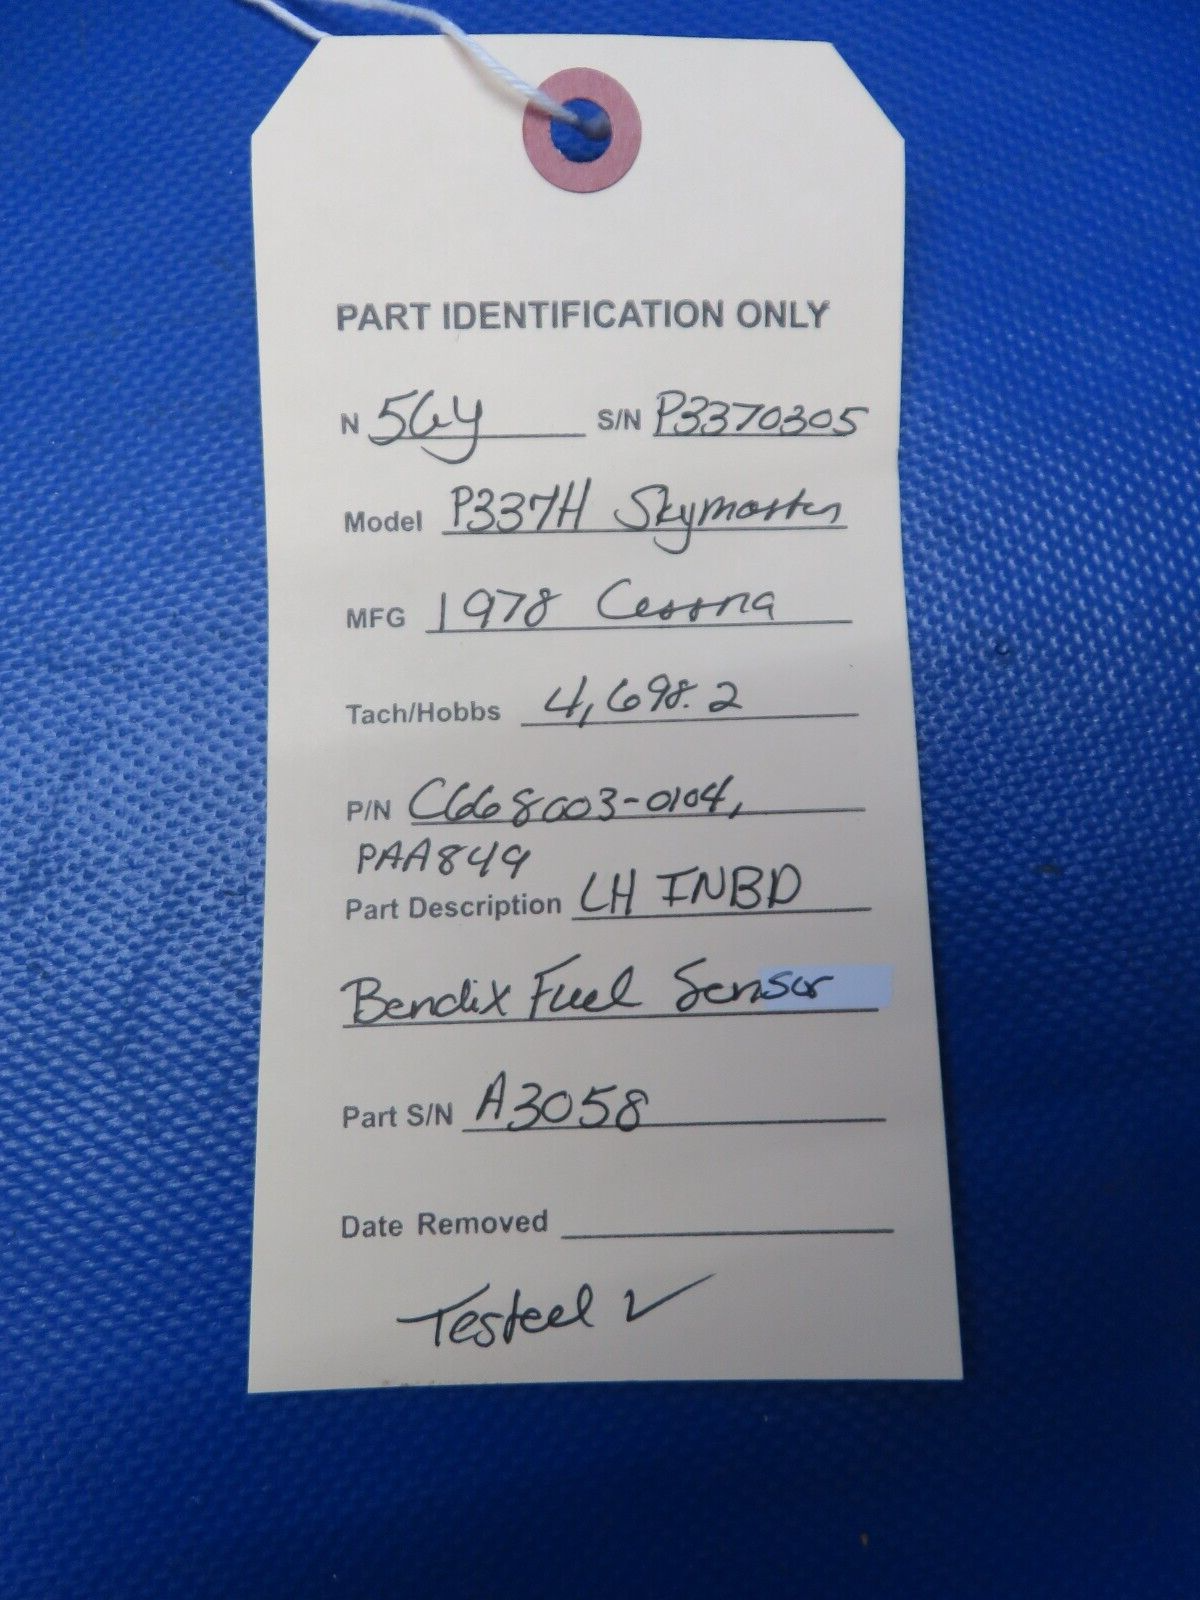 PART IDENTIFICATION ONLY
N 5GY S/N P3370305
Model P337H Skymaster
MFG 1978 Cessna
Tach/Hobbs 4,698.2
P/N C668003-0104,
PAA849
Part Description LH INBD
Bendix Fuel Sensor
Part S/N A3058
Date Removed
Tested ✓